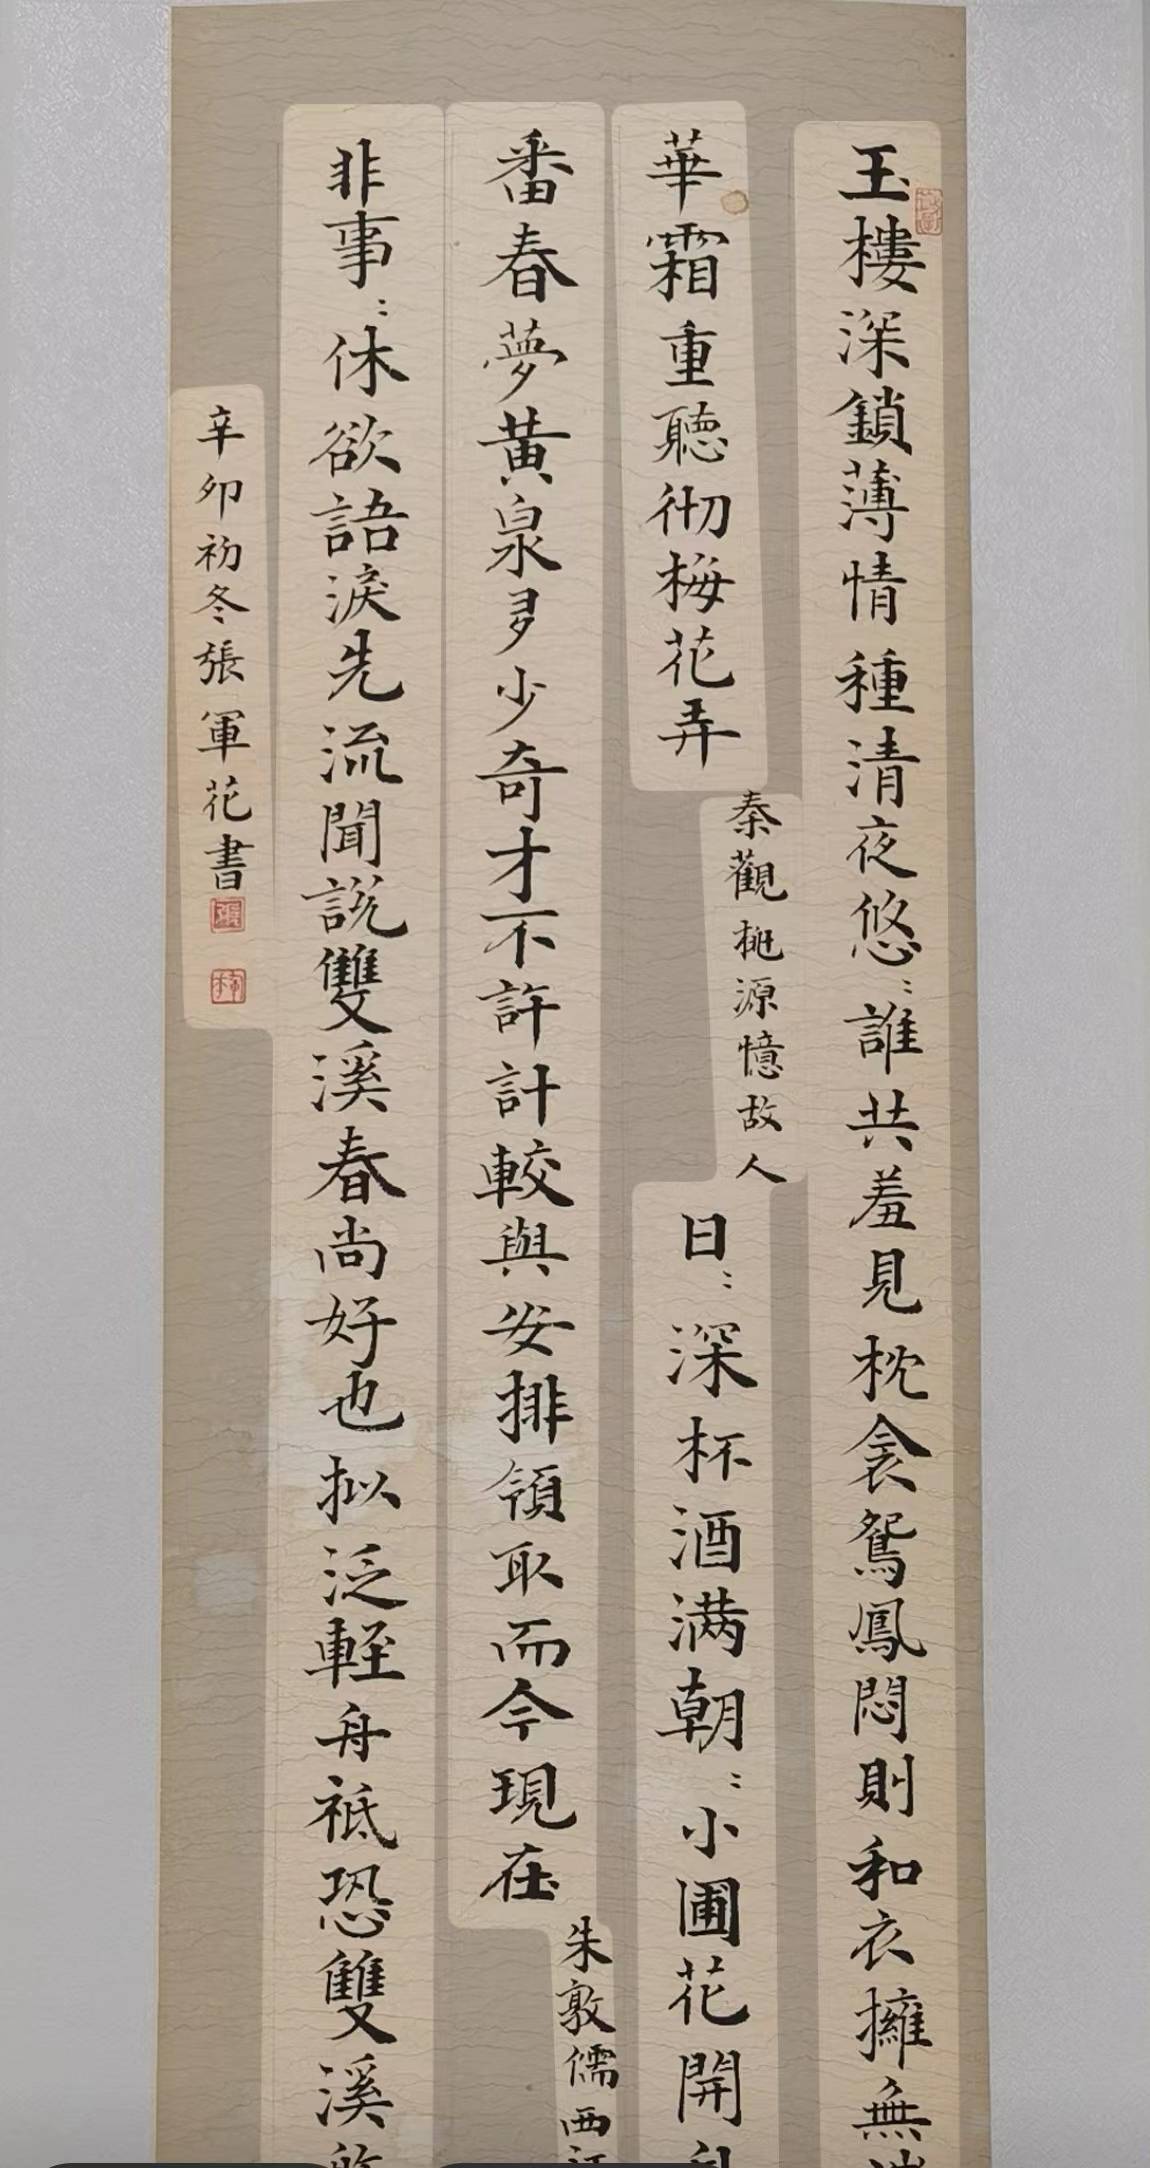 玉樓深鎖薄情種清夜悠〻誰共羞見枕衾鴛鳳悶則和衣擁無
華霜重聽彻梅花弄
秦觀桃源憶故人
日〻深杯酒满朝〻小圃花開
番春夢黄泉多少奇才不許計較與安排領取而今現在
朱敦儒西江
非事〻休欲語淚先流聞說雙溪春尚好也拟泛輕舟祗恐雙溪
辛卯初冬張軍花書